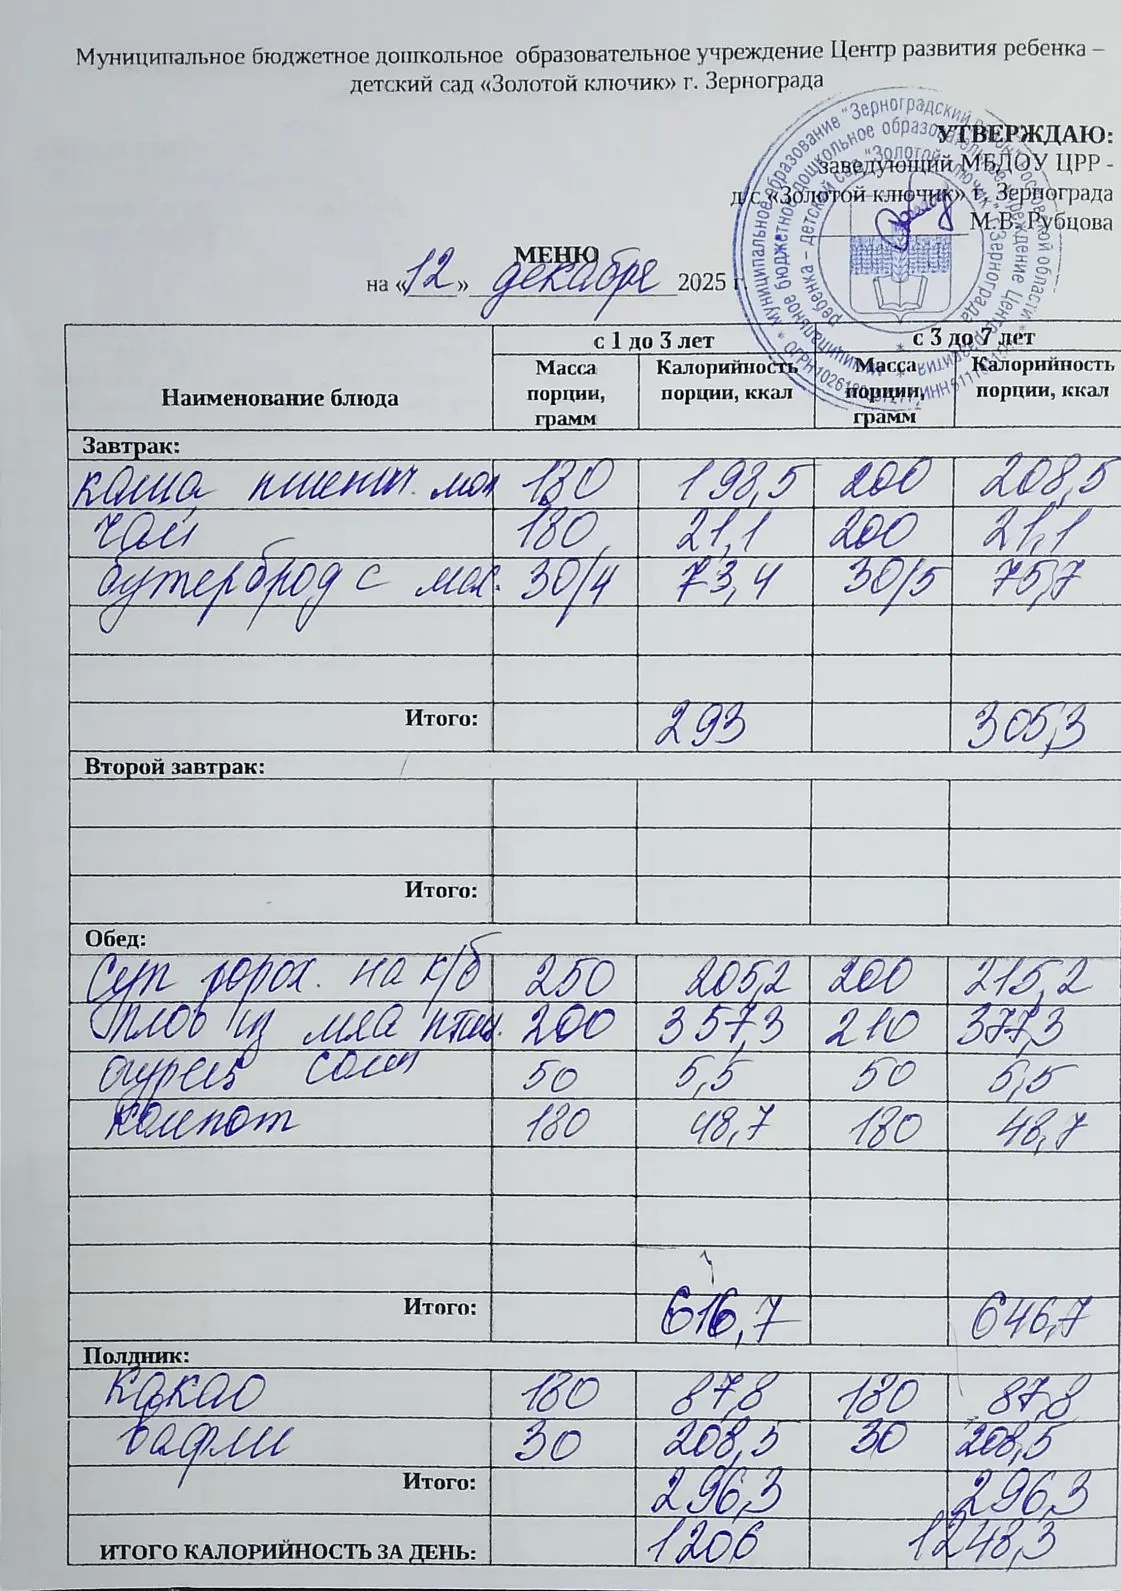 Муниципальное бюджетное дошкольное образовательное учреждение Центр развития ребенка –
детский сад «Золотой ключик» г. Зернограда
УТВЕРЖДАЮ:
заведующий МБДОУ ЦРР -
д/с «Золотой ключик» г. Зернограда
М.В. Рубцова
МЕНЮ
на «12» декабря 2025 г.
с 1 до 3 лет с 3 до 7 лет
Наименование блюда Масса порции, грамм Калорийность порции, ккал Масса порции, грамм Калорийность порции, ккал
Завтрак:
каша пшенич. мол 180 198,5 200 208,5
чай 180 21,1 200 21,1
бутерброд с мас. 30/4 73,4 30/5 75,7
Итого: 293 305,3
Второй завтрак:
Итого:
Обед:
Суп горох. на к/б 250 205,2 200 215,2
Плов из мяса птиц. 200 357,3 210 377,3
огурец сол 50 5,5 50 5,5
компот 180 48,7 180 48,7
Итого: 616,7 646,7
Полдник:
какао 180 87,8 180 87,8
вафли 30 208,5 30 208,5
Итого: 296,3 296,3
ИТОГО КАЛОРИЙНОСТЬ ЗА ДЕНЬ: 1206 1248,3